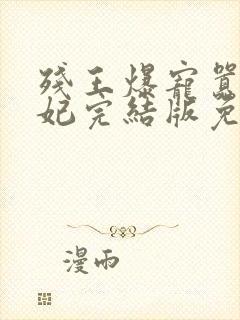 残王爆寵囂
妃完結版免
漫雨